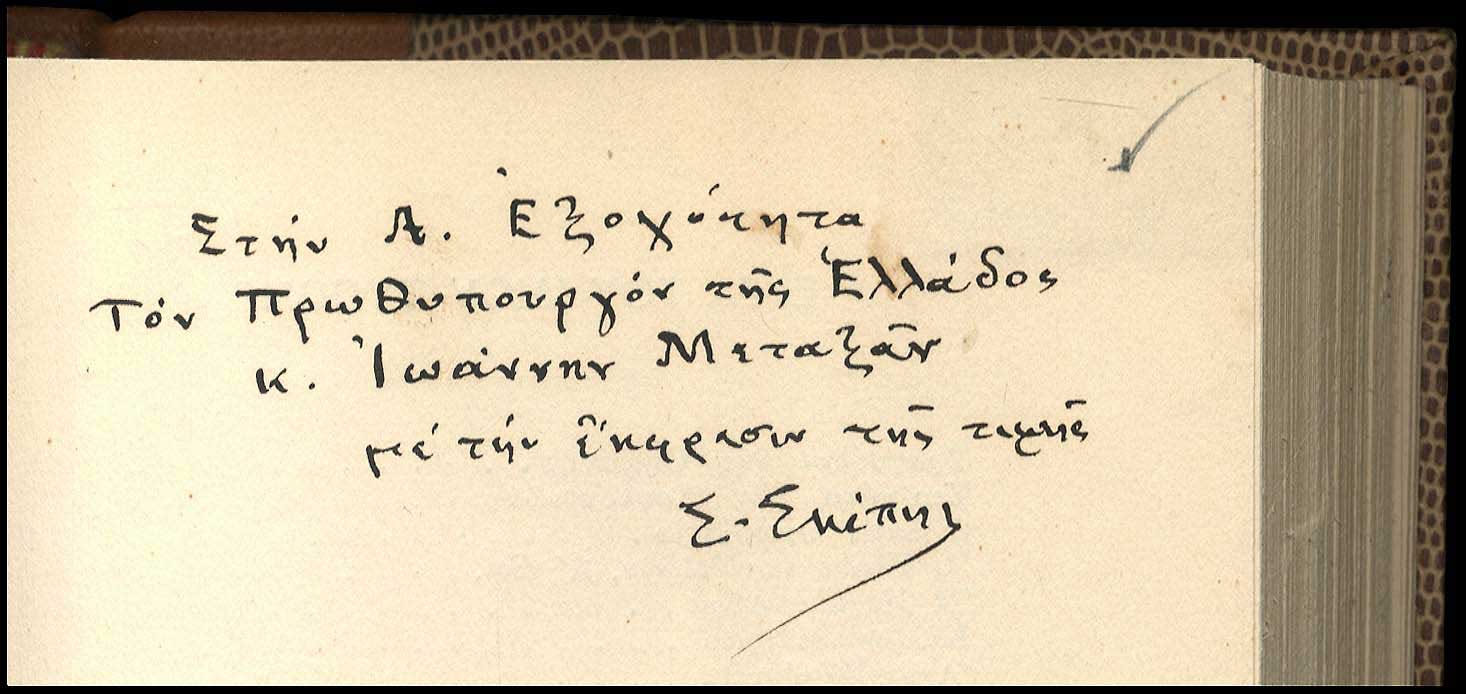 Στήν Α. Ἐξοχότητα
Τόν Πρωθυπουργόν τῆς Ἑλλάδος
κ. Ἰωάννην Μεταξᾶν
μέ τήν ἔκφρασιν τῆς τιμῆς
Σ. Σκίπης